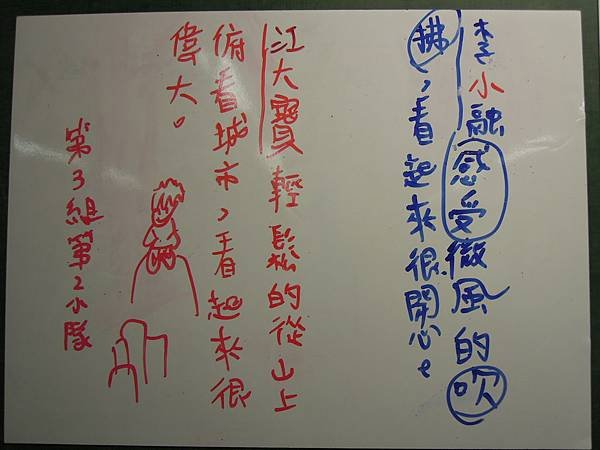 李小融感受微風的吹
拂，看起來很開心。
江大寶輕鬆的從山上
俯看城市，看起來很
偉大。
第3組第2小隊